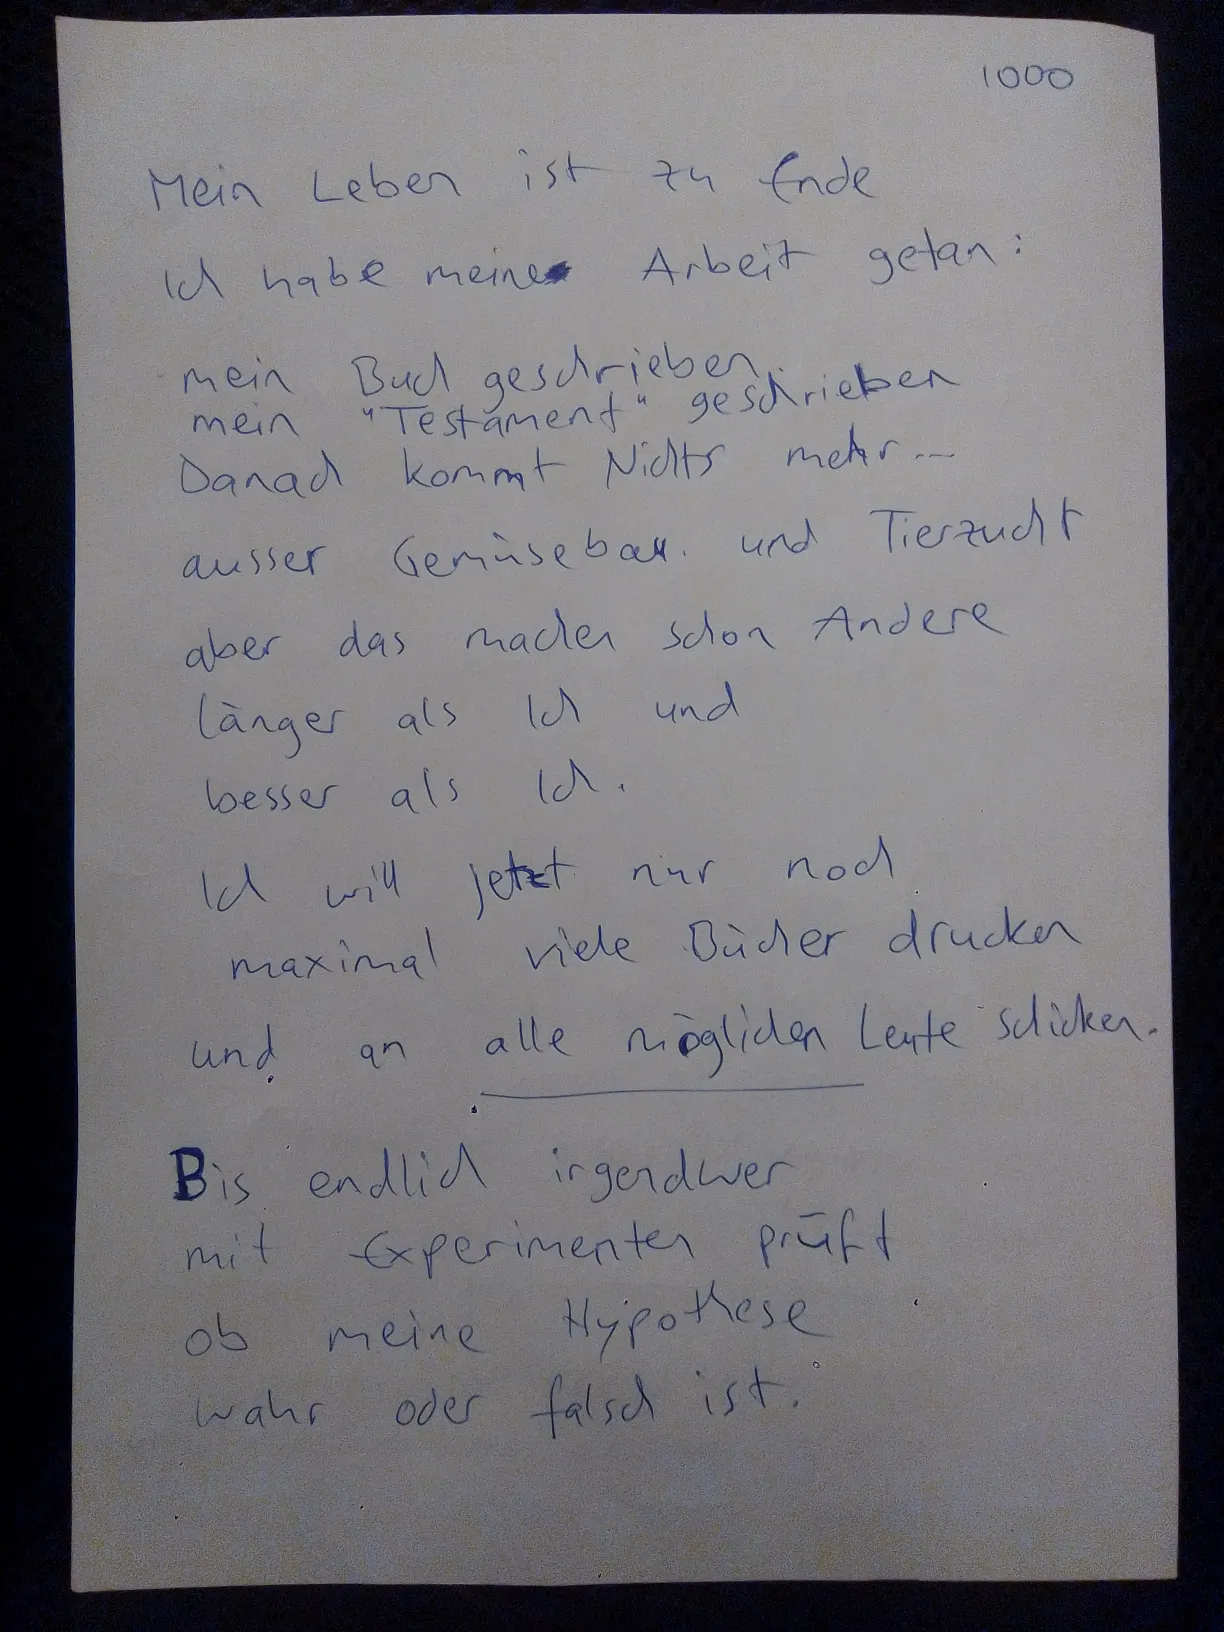 1000
Mein Leben ist zu Ende
Ich habe meine Arbeit getan:
mein Buch geschrieben,
mein "Testament" geschrieben
Danach kommt Nichts mehr...
ausser Gemüsebau. und Tierzucht
aber das machen schon Andere
länger als Ich und
besser als Ich.
Ich will jetzt nur noch
maximal viele Bücher drucken
und an alle möglichen Leute schicken.
Bis endlich irgendwer
mit Experimenten prüft
ob meine Hypothese
wahr oder falsch ist.